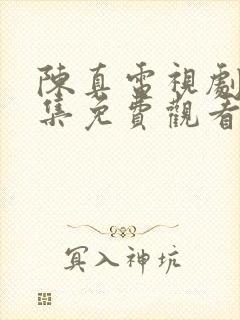 陳真電視劇
集免費觀看
冥入神坑